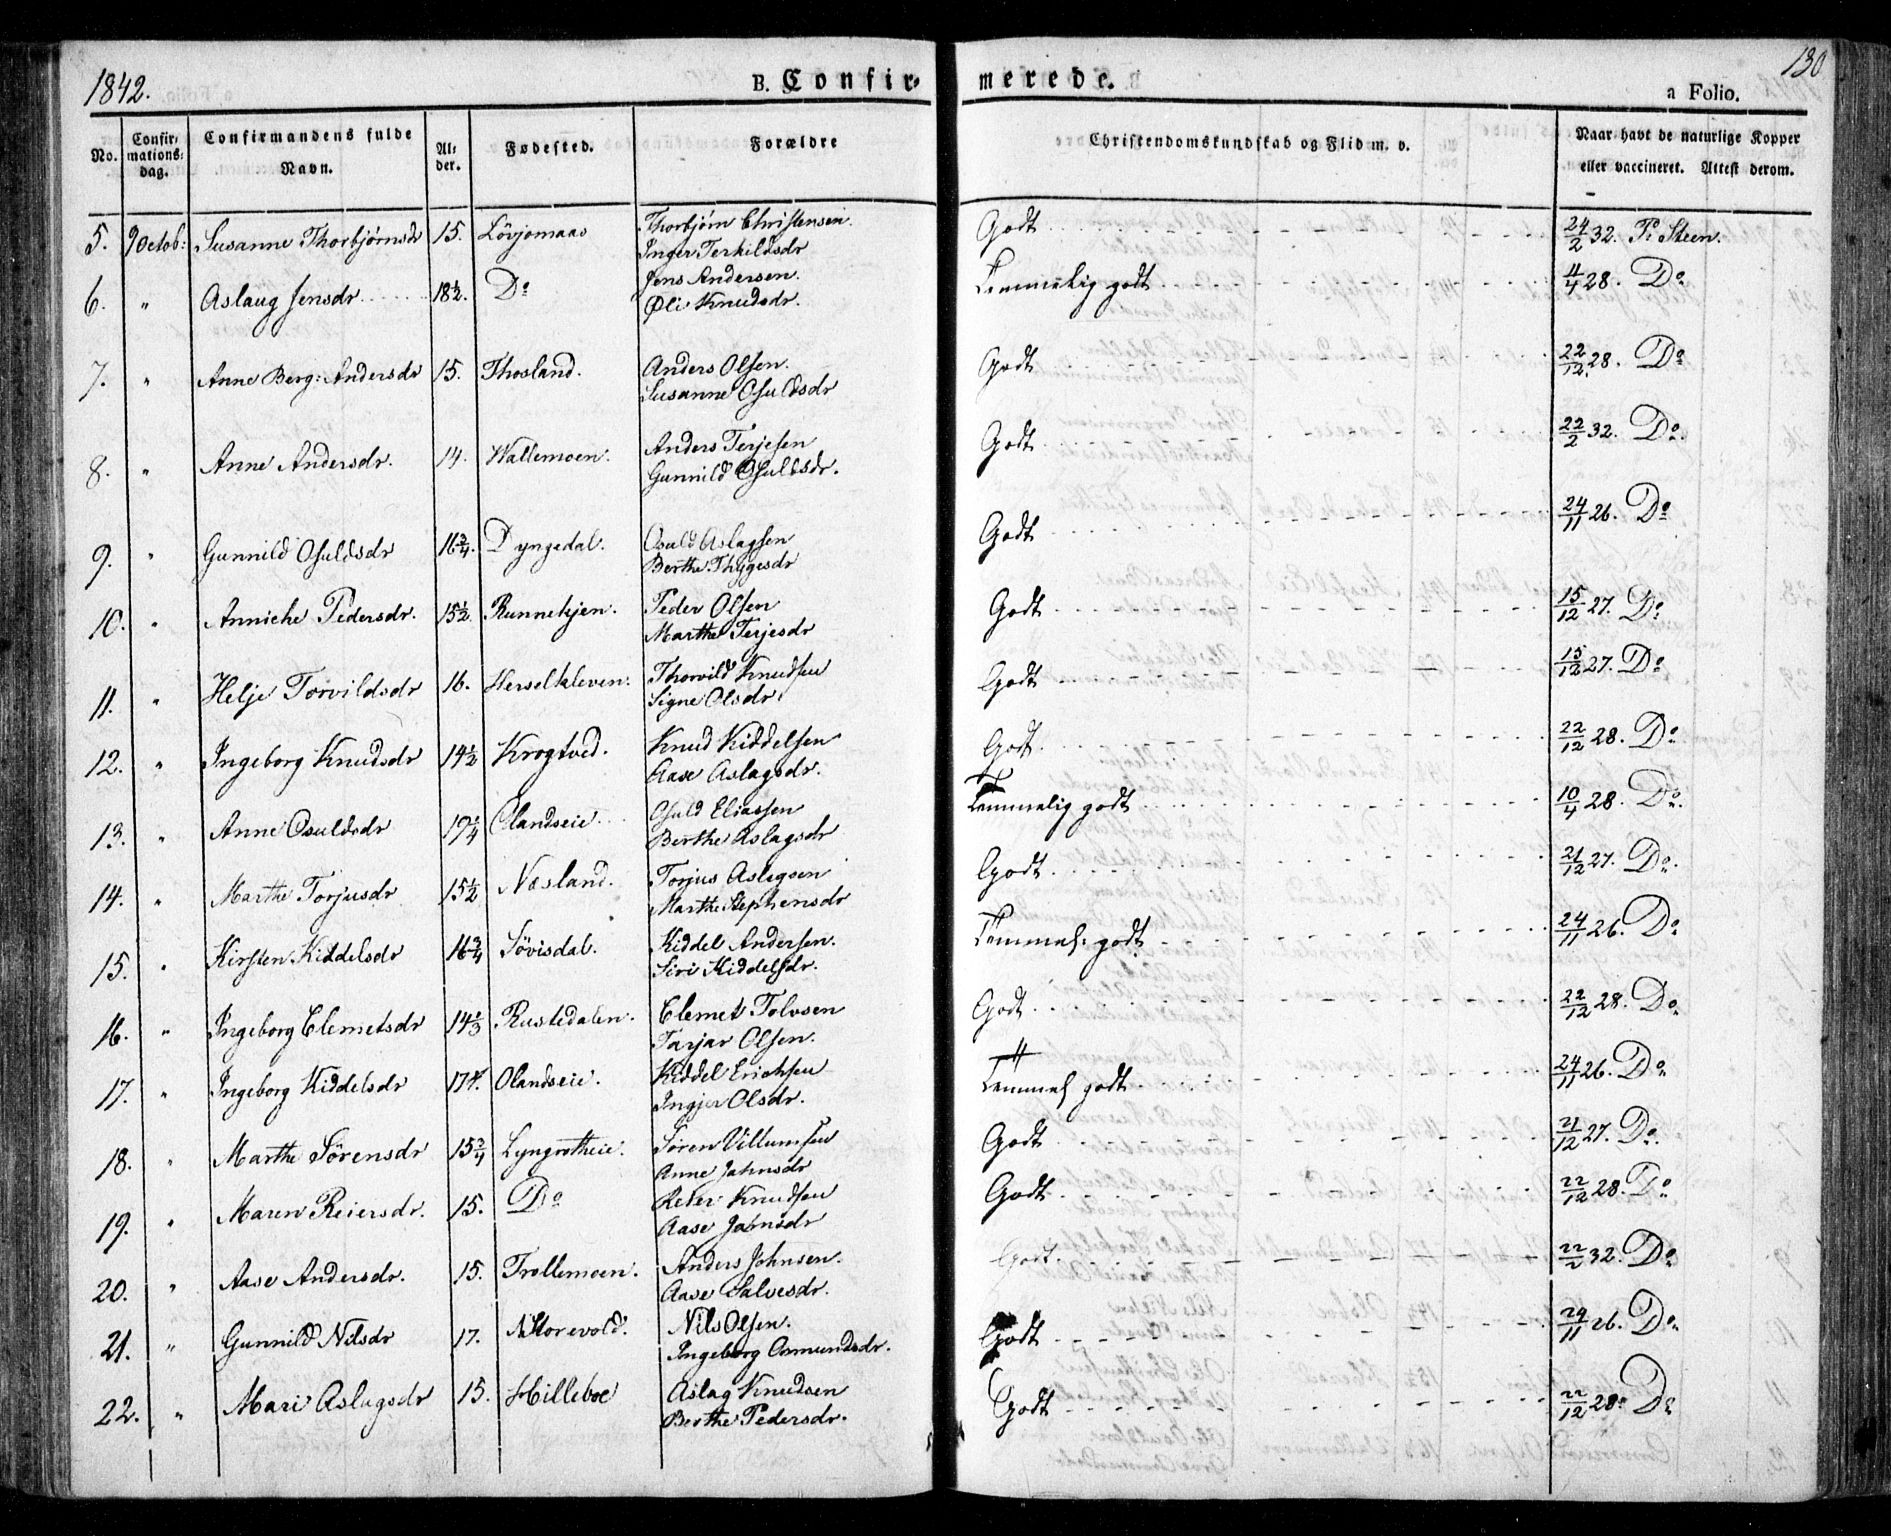 1842. B. Confirmerede. 130
a Folio.
No. Confirmations: dag. Confirmandens fulde Navn. Alder. Fødested. Forældre Christendomskundskab og Flid m. v. Naar havt de naturlige Kopper eller vaccineret. Attest derom.
5. 9 Octob: Susanne Thorbjørnsdr 15. Lövjomaas Thorbjörn Christensen. Godt 24/2 32. Pr Steen.
Inger Terkildsdr
6. " Aslaug Jensdr 18½. Do Jens Andersen. Temmelig godt 11/4 28. Do
Øli Knudsdr.
7. " Anne Berg: Andersdr 15. Thosland. Anders Olsen. Godt 22/12 28. Do
Susanne Osuldsdr
8. " Anne Andersdr. 14. Wallemoen. Anders Terjesen Godt 22/2 32. Do.
Gunnild Osuldsdr.
9. " Gunnild Osuldsdr 16¾. Dyngedal. Osuld Aslagsen Godt 24/11 26. Do
Berthe Thygesdr
10. " Anniche Pedersdr. 15½. Runnekjen. Peder Olsen Godt 15/12 27. Do
Marthe Terjesdr
11. " Helje Torvildsdr 16. Herselkleven. Thorvild Knudsen Godt 15/12 27. Do
Signe Olsdr.
12. " Ingeborg Knudsdr 14½ Krogtved. Knud Kiddelsen Godt. 22/12 28. Do
Aase Aslagsdr.
13. " Anne Osuldsdr 19¼ Olandseie. Osuld Eliassen Temmelig godt 10/4 28. Do.
Berthe Aslagsdr
14. " Marthe Torjusdr 15½ Næsland. Torjus Aslagsen Godt. 21/12 27. Do.
Marthe Stephensdr
15. " Kirsten Kiddelsdr 16¾ Sövisdal. Kiddel Andersen. Temmel. godt 24/11 26. Do
Siri Kiddelsdr.
16. " Ingeborg Clemetsdr 14⅓ Rustedalen. Clemet Tolvsen Godt. 22/12 28. Do
Tarjar Olsen.
17. " Ingeborg Kiddelsdr 17 Olandseie. Kiddel Erichsen Temmel godt 24/11 26. Do
Ingjer Olsdr.
18. " Marthe Sörensdr 15¾ Lyngrotheie. Sören Villumsen Godt 21/12 27. Do.
Anne Jahnsdr
19. " Maren Reiersdr. 15. Do Reier Knudsen Godt 22/12 28. Do
Aase Jahnsdr
20. " Aase Andersdr. 15. Trollemoen. Anders Johnsen. Godt. 22/2 32. Do
Aase Salvesdr.
21. " Gunnild Nilsdr 17. Storevold. Nils Olsen. Godt 24/11 26. Do
Ingeborg Osmundsdr.
22. " Mari Aslagsdr 15. Hilleboe Aslag Knudsen Godt 22/12 28. Do
Berthe Pedersdr.